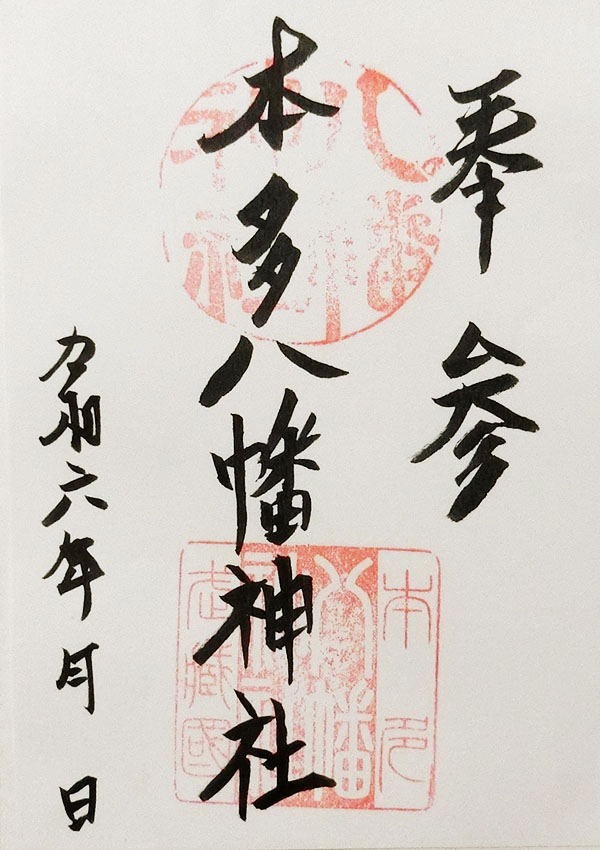 奉参
本多八幡神社
令和六年月日
八幡
神社
八幡
神社
武蔵國